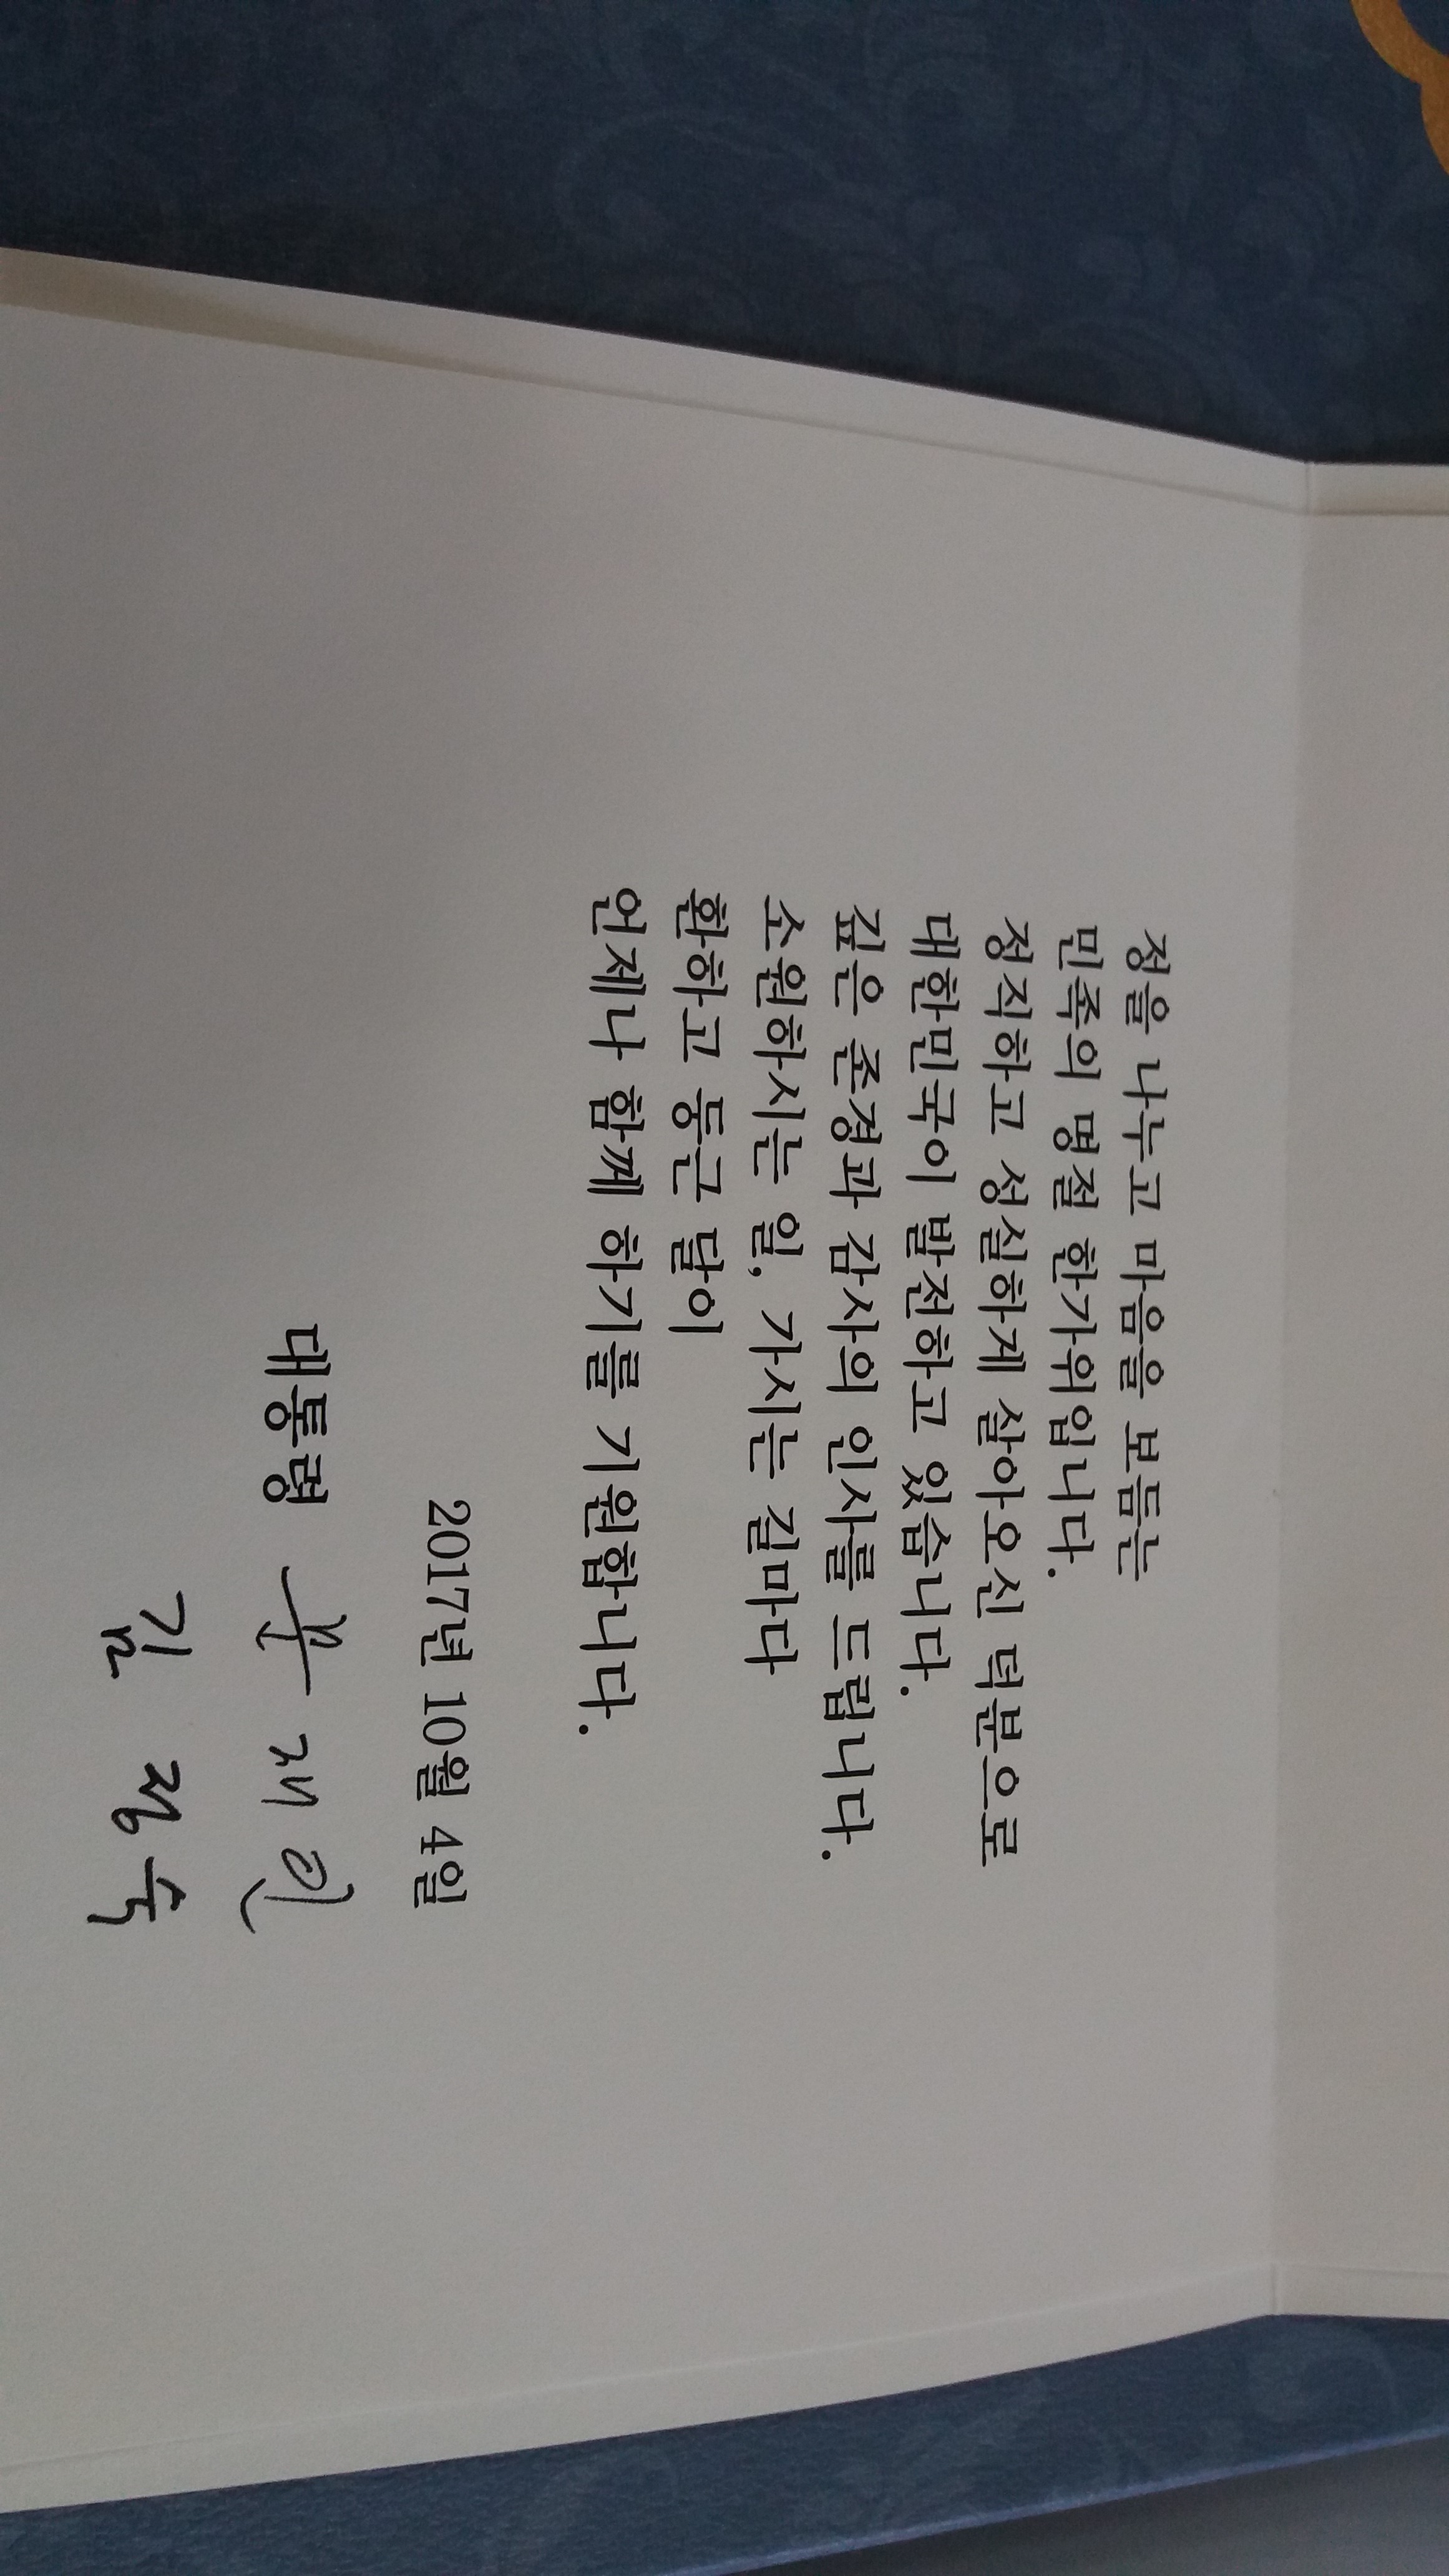 정을 나누고 마음을 보듬는
민족의 명절 한가위입니다.
정직하고 성실하게 살아오신 덕분으로
대한민국이 발전하고 있습니다.
깊은 존경과 감사의 인사를 드립니다.
소원하시는 일, 가시는 길마다
환하고 둥근 달이
언제나 함께 하기를 기원합니다.
2017년 10월 4일
대통령 문재인
김정숙